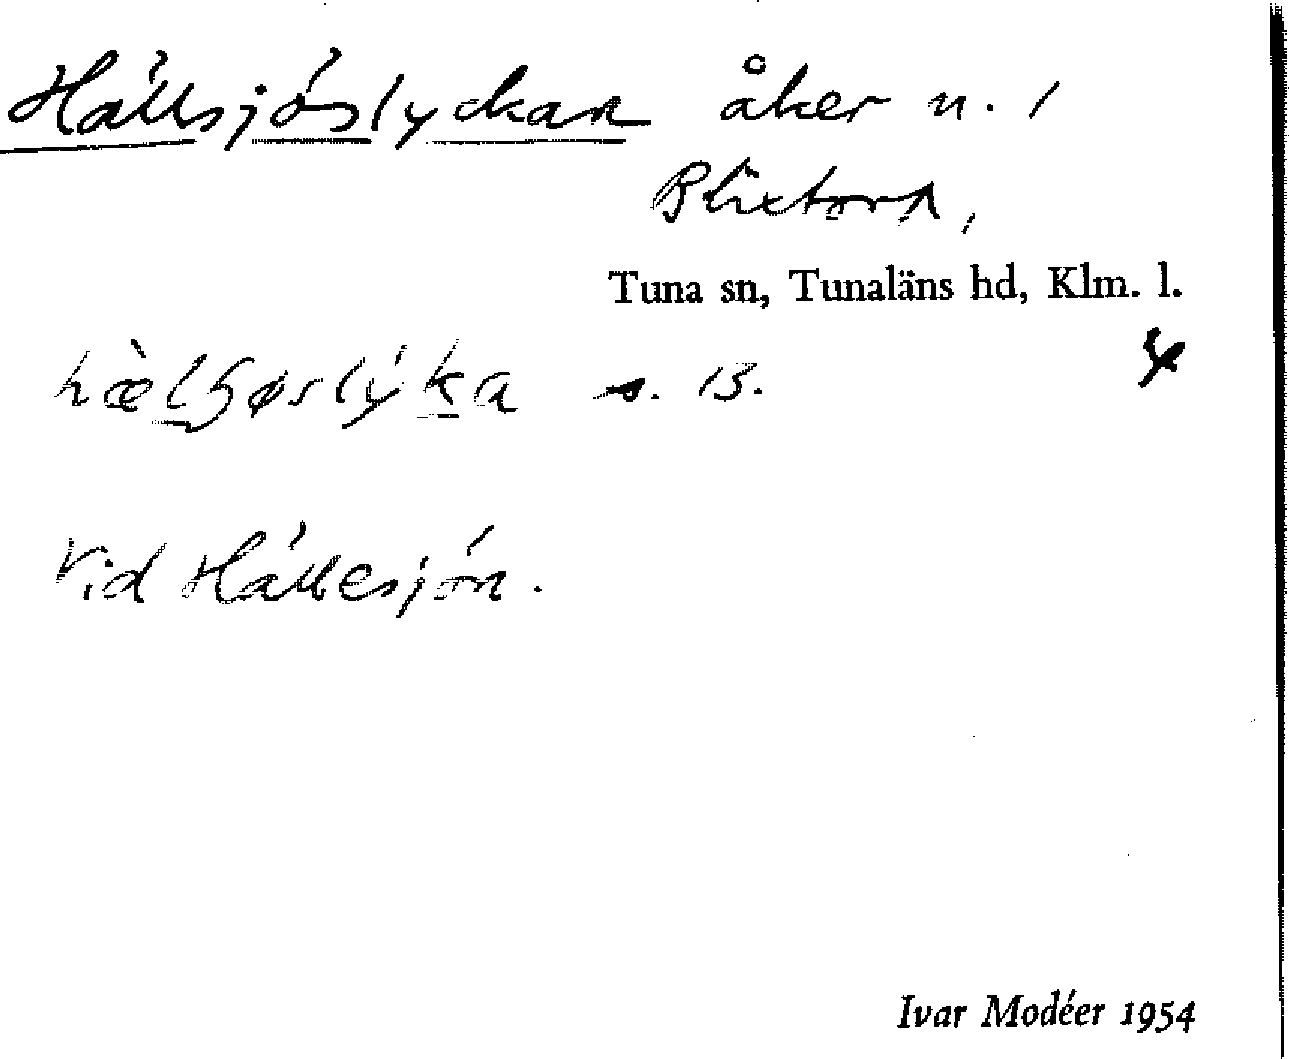 Hällsjöslyckan åker n. 1
Blixtorp,
Tuna sn, Tunaläns hd, Klm. l.
s. 13.
Vid Hällesjön.
Ivar Modéer 1954